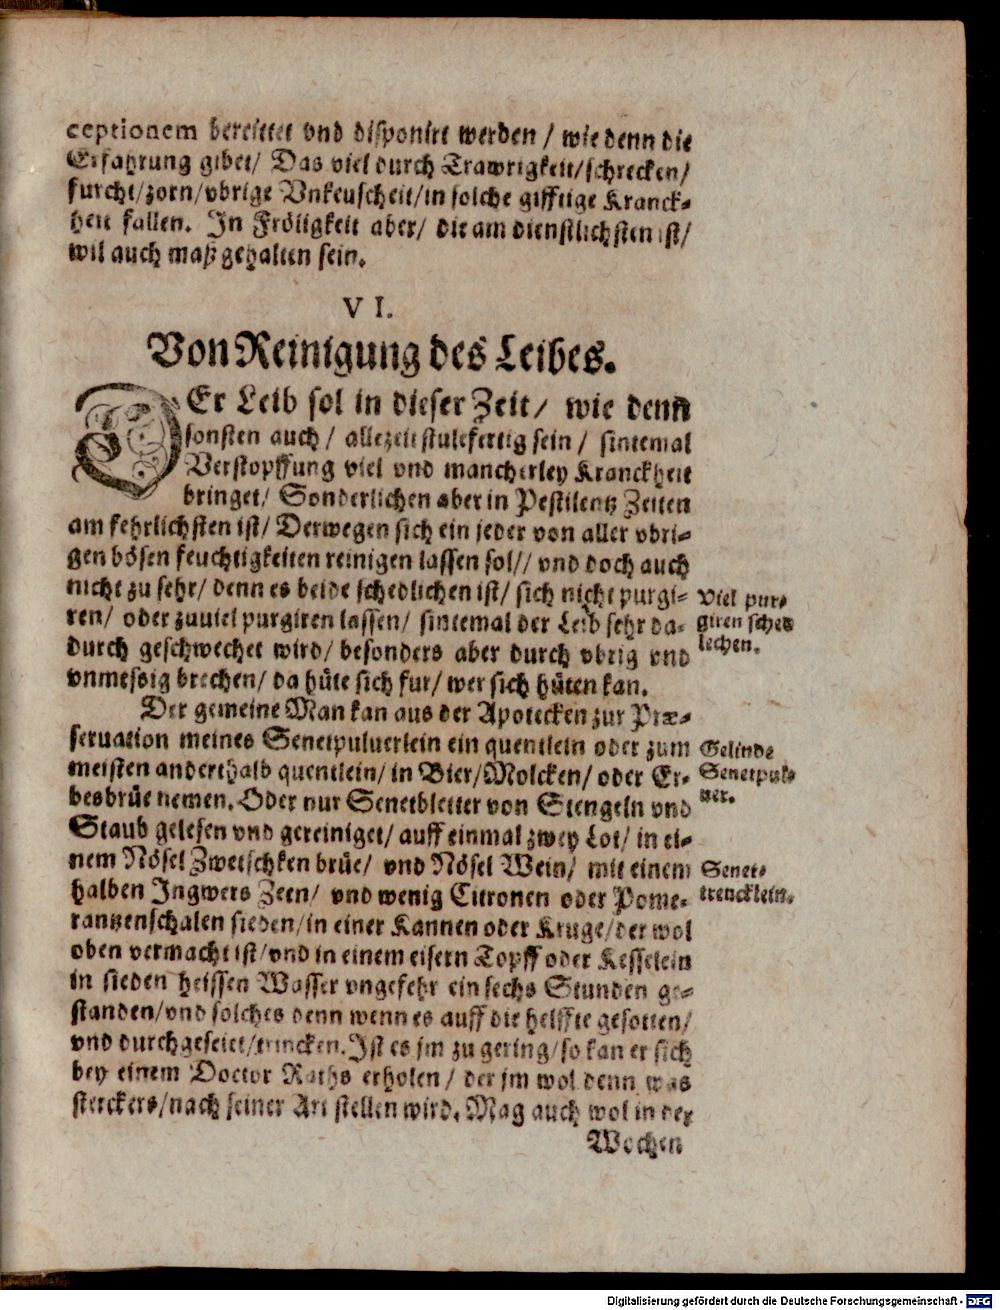 ceptionem bereittet vnd disponirt werden / wie denn die
Erfahrung gibet / Das viel durch Trawrigkeit / schrecken /
furcht / zorn / vbrige Vnkeuscheit / in solche gifftige Kranck-
heit fallen. In Fröligkeit aber / die am dienstlichsten ist /
wil auch maß gehalten sein.
VI.
Von Reinigung des Leibes.
DEr Leib sol in dieser Zeit / wie denn
sonsten auch / allezeit stulefertig sein / sintemal
Verstopffung viel vnd mancherley Kranckheit
bringet / Sonderlichen aber in Pestilentz Zeiten
am fehrlichsten ist / Derwegen sich ein jeder von aller vbri-
gen bösen feuchtigkeiten reinigen lassen sol // vnd doch auch
nicht zu sehr / denn es beide schedlichen ist / sich nicht purgi-
ren / oder zuuiel purgiren lassen / sintemal der Leib sehr da-
durch geschwechet wird / besonders aber durch vbrig vnd
vnmessig brechen / da hüte sich fur / wer sich hüten kan.
Viel pur-
giren sched-
lechen.
Der gemeine Man kan aus der Apotecken zur Præ-
seruation meines Senetpuluerlein ein quentlein oder zum
meisten anderthalb quentlein / in Bier / Molcken / oder Er-
besbrüe nemen. Oder nur Senetbletter von Stengeln vnd
Staub gelesen vnd gereiniget / auff einmal zwey Lot / in ei-
nem Nösel Zwetschken brüe / vnd Nösel Wein / mit einem
halben Ingwers Zeen / vnd wenig Citronen oder Pome-
rantzenschalen sieden / in einer Kannen oder Kruge / der wol
oben vermacht ist / vnd in einem eisern Topff oder Kesselein
in sieden heissen Wasser vngefehr ein sechs Stunden ge-
standen / vnd solches denn wenn es auff die helffte gesotten /
vnd durchgeseiet / trincken. Ist es jm zu gering / so kan er sich
bey einem Doctor Raths erholen / der jm wol denn was
sterckers / nach seiner Art stellen wird. Mag auch wol in der
Gelinde
Senetpul-
uer.
Senet-
trencklein.
Wochen
Digitalisierung gefördert durch die Deutsche Forschungsgemeinschaft - DFG